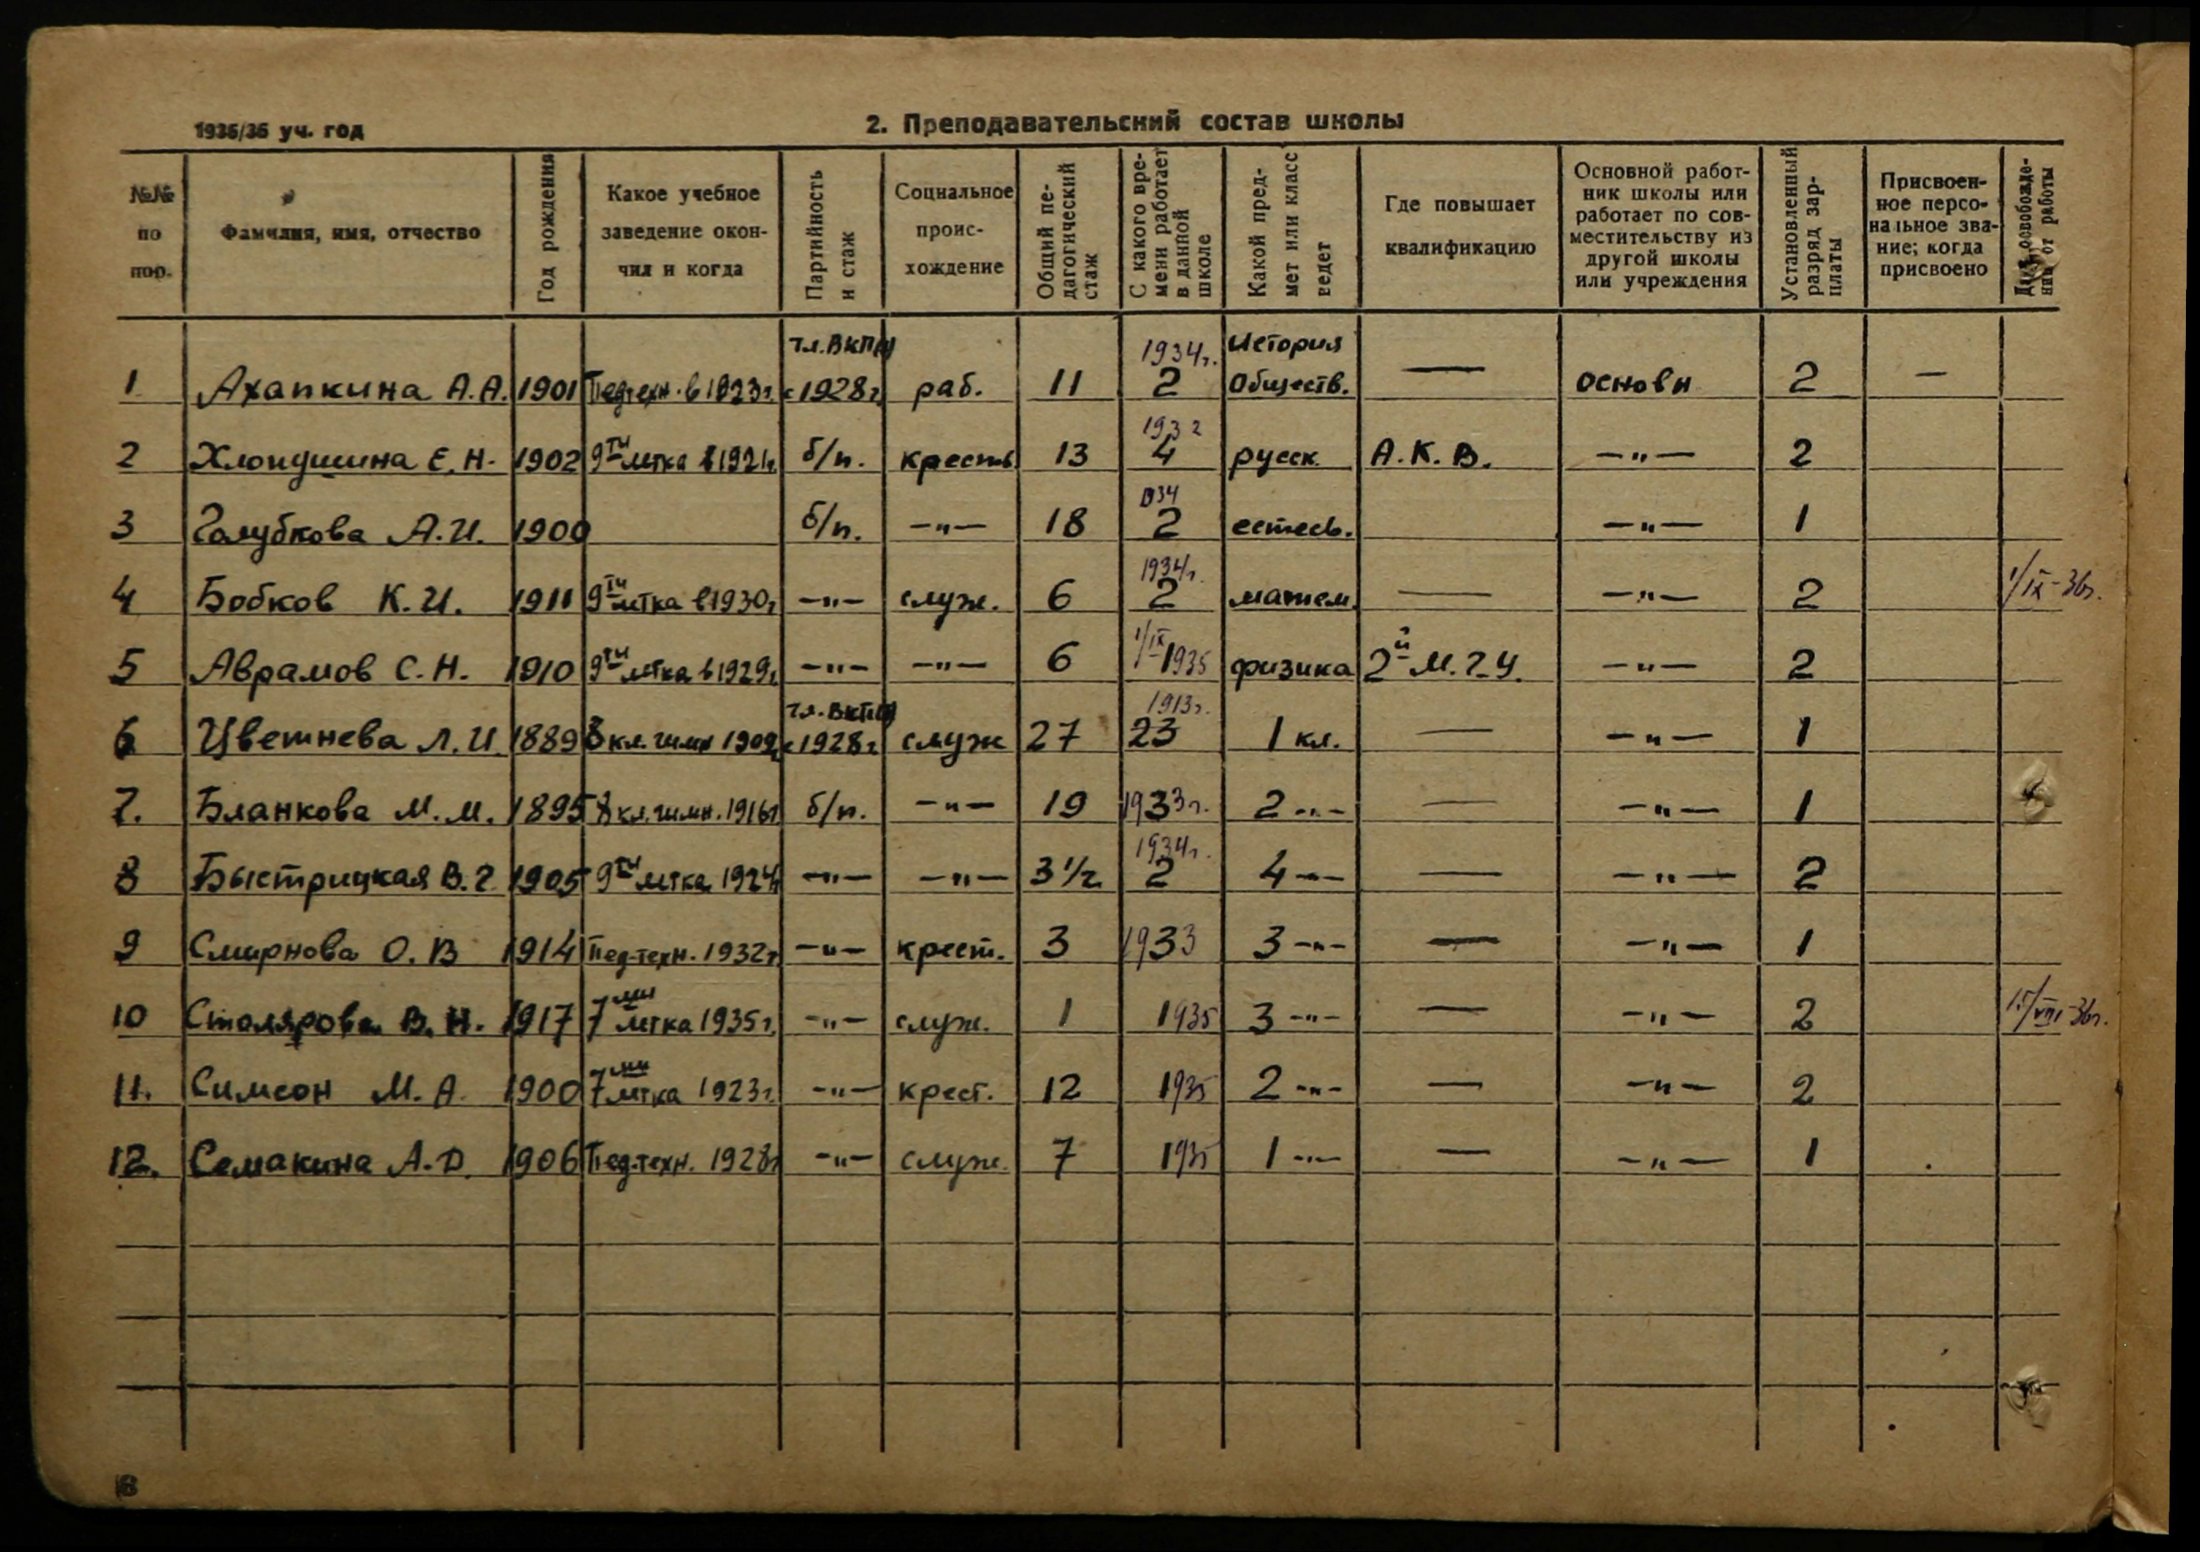 1935/36 уч. год
2. Преподавательский состав школы
№№ по пор. | Фамилия, имя, отчество | Год рождения | Какое учебное заведение окончил и когда | Партийность и стаж | Социальное происхождение | Общий педагогический стаж | С какого времени работает в данной школе | Какой предмет или класс ведет | Где повышает квалификацию | Основной работник школы или работает по совместительству из другой школы или учреждения | Установленный разряд зарплаты | Присвоенное персональное звание; когда присвоено | освобождения от работы
1 | Ахапкина А.А. | 1901 | Пед.техн. в 1923г. | чл. ВКП(б) с 1928г. | раб. | 11 | 1934г. 2 | История Обществ. | — | основн | 2 | —
2 | Хлопушина Е.Н. | 1902 | 9ти летка в 1921г. | б/п. | крестьян | 13 | 1932 4 | русск. | А.К.В. | —"— | 2
3 | Голубкова А.И. | 1900 | | б/п. | —"— | 18 | 1934 2 | естеств. | | —"— | 1
4 | Бобков К.И. | 1911 | 9ти летка в 1930г. | —"— | служ. | 6 | 1934г. 2 | матем. | — | —"— | 2 | | 1/IX-36г.
5 | Аврамов С.Н. | 1910 | 9ти летка в 1929г. | —"— | —"— | 6 | 1/IX 1935 | физика | 2й М.Г.У. | —"— | 2
6 | Цветнева Л.И. | 1889 | 8 кл. гимн 1909г. | чл. ВКП(б) с 1928г. | служ | 27 | 1913г. 23 | 1 кл. | — | —"— | 1
7. | Бланкова М.М. | 1895 | 8 кл. гимн. 1916г | б/п. | —"— | 19 | 1933г. | 2 —"— | — | —"— | 1
8 | Быстрицкая В.Г. | 1905 | 9ти летка 1924г. | —"— | —"— | 3 1/2 | 1934г. 2 | 4 —"— | — | —"— | 2
9 | Смирнова О.В | 1914 | Пед.техн. 1932г. | —"— | крест. | 3 | 1933 | 3 —"— | — | —"— | 1
10 | Столярова В.Н. | 1917 | 7ми летка 1935г. | —"— | служ. | 1 | 1935 | 3 —"— | — | —"— | 2 | | 15/VIII-36г.
11. | Симсон М.А. | 1900 | 7ми летка 1923г. | —"— | крест. | 12 | 1935 | 2 —"— | — | —"— | 2
12. | Семакина А.Д. | 1906 | Пед.техн. 1928г | —"— | служ. | 7 | 1935 | 1 —"— | — | —"— | 1
6